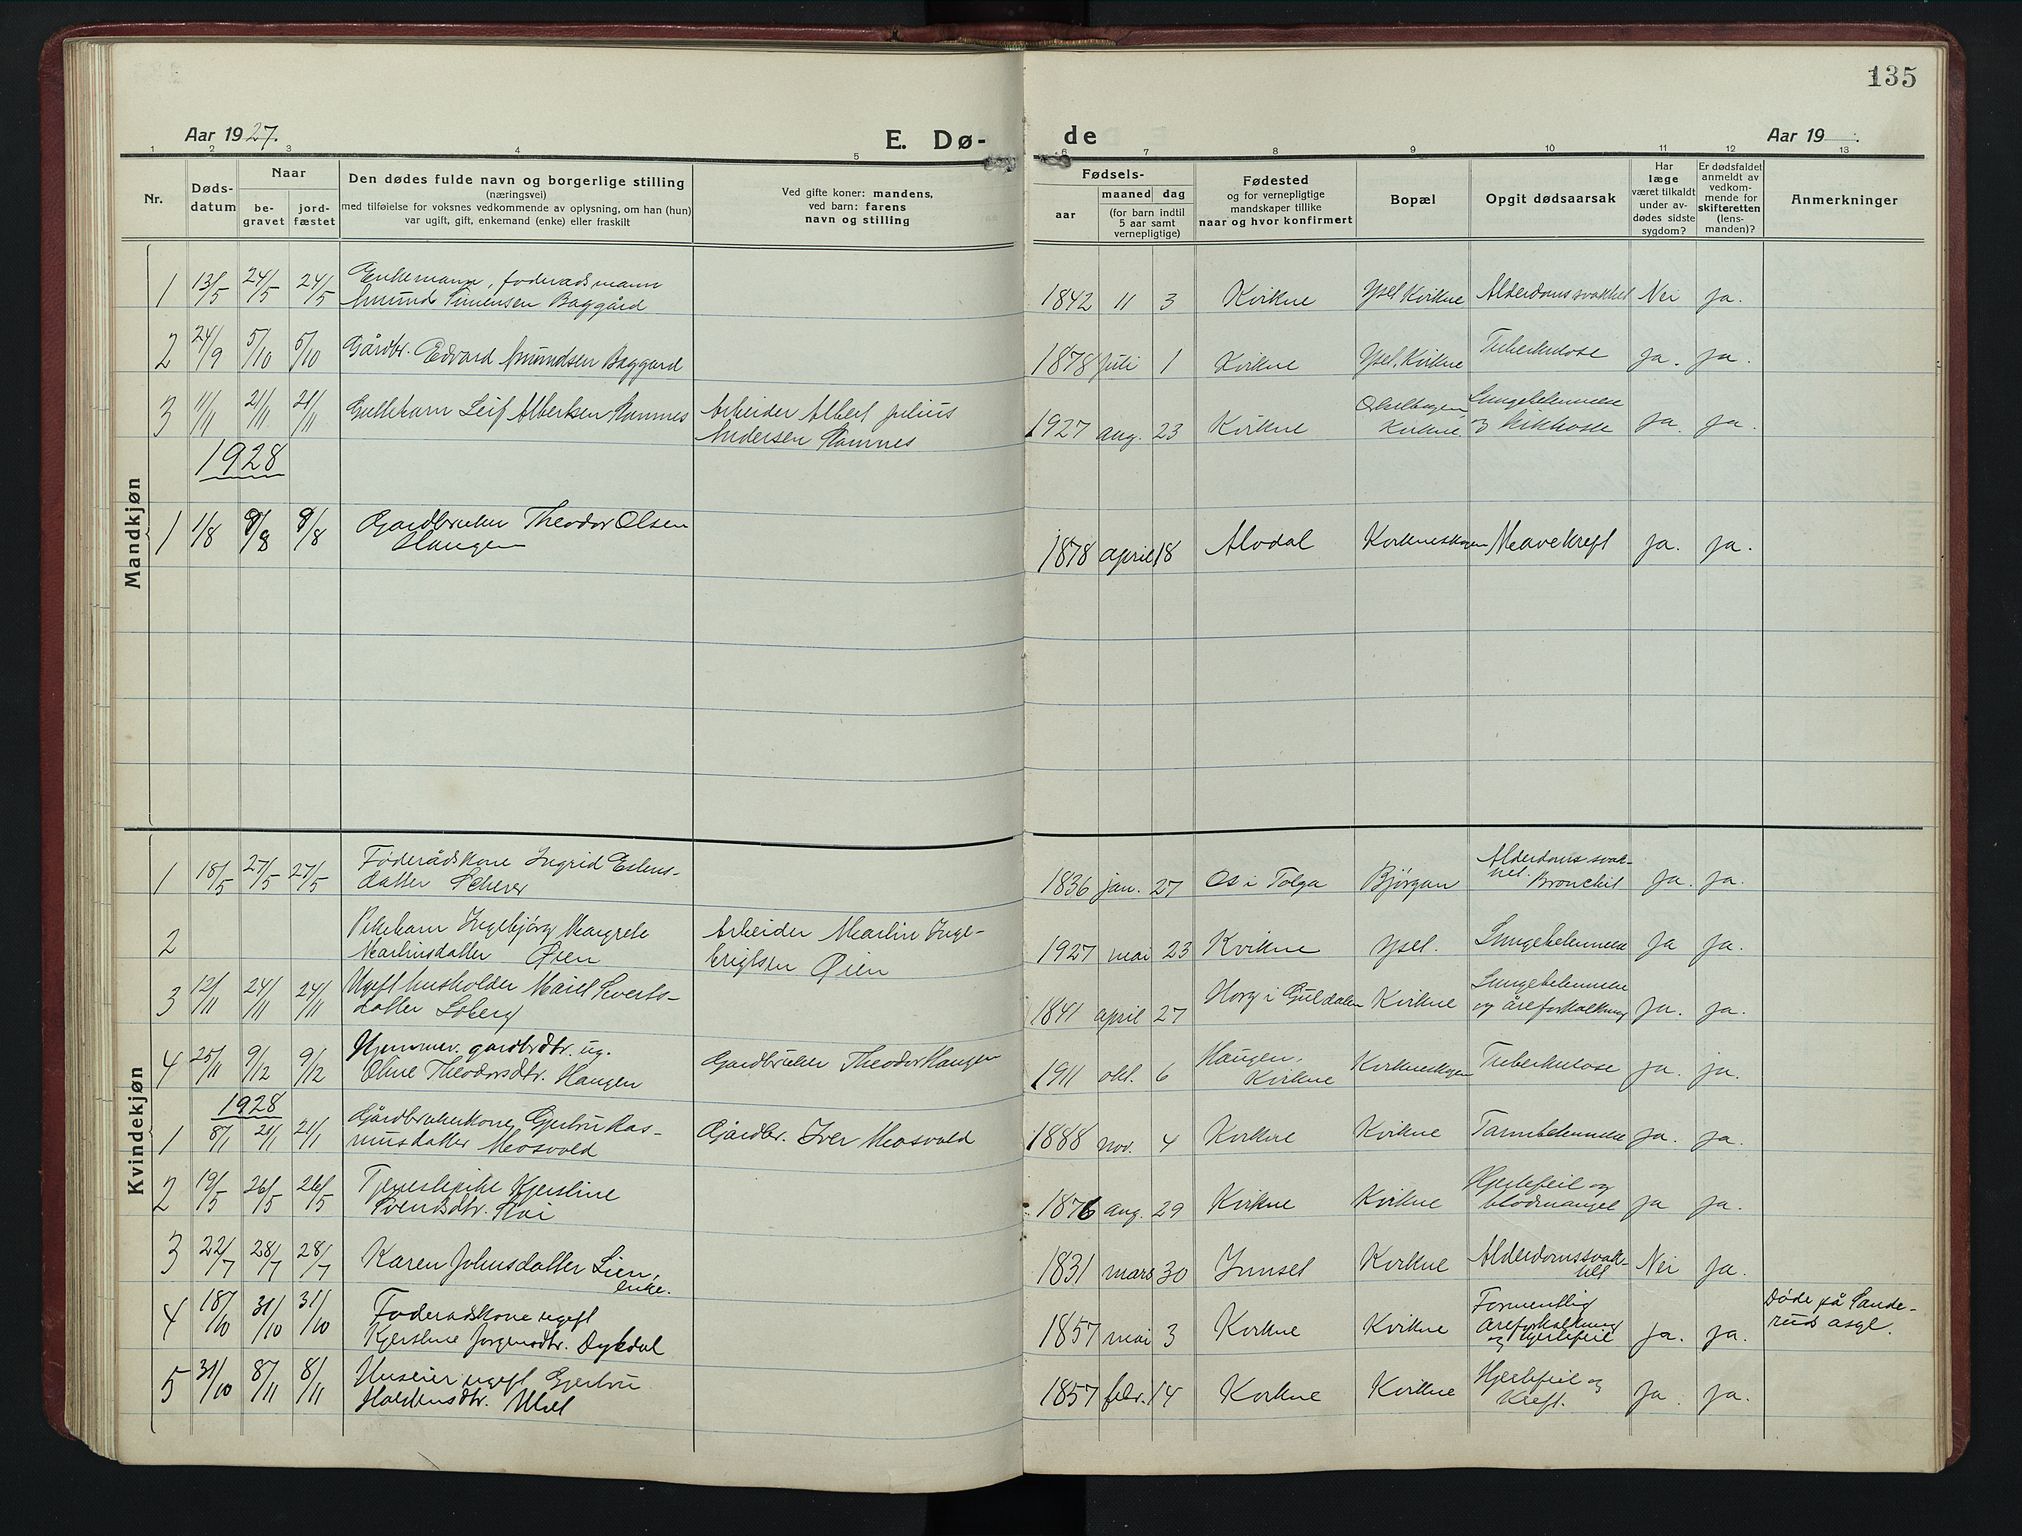 135
Aar 1927.
E. Dø-
de
Aar 19
1 2 3 4 5 6 7 8 9 10 11 12 13
Nr.
Døds-
datum
Naar
be-
gravet
jord-
fæstet
Den dødes fulde navn og borgerlige stilling
(næringsvei)
med tilføielse for voksnes vedkommende av oplysning, om han (hun)
var ugift, gift, enkemand (enke) eller fraskilt
Ved gifte koner: mandens,
ved barn: farens
navn og stilling
Fødsels-
aar
maaned
dag
(for barn indtil
5 aar samt
vernepligtige)
Fødested
og for vernepligtige
mandskaper tillike
naar og hvor konfirmert
Bopæl
Opgit dødsaarsak
Har
læge
været tilkaldt
under av-
dødes sidste
sygdom?
Er dødsfaldet
anmeldt av
vedkom-
mende for
skifteretten
(lens-
manden)?
Anmerkninger
Mandkjøn
1 13/5 24/5 24/5 Enkemann, foderadsmann
Amund Simensen Baggård
1842 11 3 Kvikne Ysel Kvikne Alderdomssvakhet Nei ja.
2 24/9 5/10 5/10 Gårdbr. Edvard Amundsen Baggard
1878 juli 1 Kvikne Ysel, Kvikne Tuberkulose ja. ja.
3 11/11 21/11 21/11 Guttebarn Leif Albertsen Stamnes Arbeider Albert Julius
Andersen Stamnes
1927 aug. 23 Kvikne Kvikne. Lungebetennelse
og kikhoste ja. ja.
1928
1 1/8 9/8 9/8 Gardbruker Theodor Olsen
Haugen
1878 april 18 Alvdal Kvikneskogen Mavekreft ja. ja.
Kvindekjøn
1 18/5 27/5 27/5 Føderådskone Ingrid Estens-
datter
1836 jan. 27 Os i Tolga Bjørgan Alderdoms svak-
het. Bronchit ja. ja.
2 Pikebarn Ingebjørg Margrete
Martinsdatter Øien
Arbeider Martin Inge-
brigtsen Øien
1927 mai 23 Kvikne Ysel. Lungebetennelse ja ja.
3 12/11 24/11 24/11 Ugift husholder Marit Siverts-
datter Soberg
1841 april 27 Horg i Guldalen Kvikne Lungebetennelse
og åreforkalkning ja. ja.
4 25/11 9/12 9/12 Hjemmev. gardbrdtr. ug.
Oline Theodorsdtr. Haugen
Gardbruker Theodor Haugen
1911 okt. 6 Haugen,
Kvikne Kvikneskogen Tuberkulose ja. ja.
1928
1 8/1 21/1 21/1 Gårdbrukerkone Gjertru Ras-
musdatter Mosvold
Gårdbr. Iver Mosvold
1888 nov. 4 Kvikne Kvikne Tarmbetennelse ja. ja.
2 19/5 26/5 26/5 Tjenestepike Kjerstine
Svendsdtr. Stai
1876 aug. 29 Kvikne Kvikne Hjertefeil og
blodmangel ja ja.
3 22/7 28/7 28/7 Karen Johnsdatter Lien,
enke.
1831 mars 30 Innset Kvikne Alderdomssvak-
het Nei ja.
4 18/10 31/10 31/10 Foderadskone ugift
Kjerstine Jorgensdtr. Dykdal
1857 mai 3 Kvikne Kvikne Formentlig
Areforkalkning
og Hjertefeil ja. ja. Døde på Sande-
ruds asyl.
5 31/10 8/11 8/11 Huseier ugift Gjertru
Halstensdtr.
1857 febr. 14 Kvikne Kvikne Hjertefeil og
kreft. ja. ja.